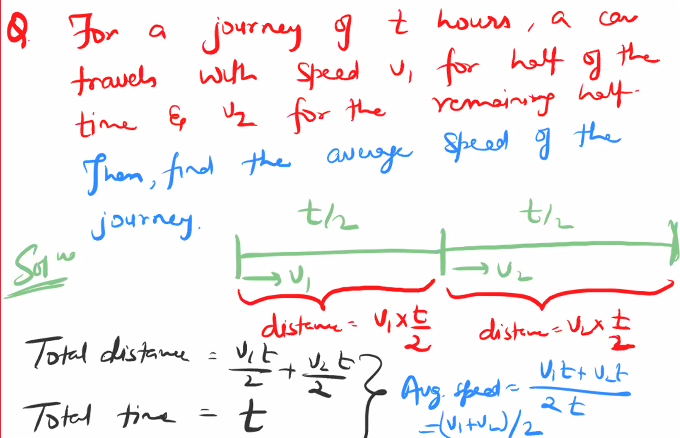 Q. For a journey of t hours, a car
travels with speed v₁ for half of the
time & v₂ for the remaining half.
Then, find the average speed of the
journey.
Solⁿ
t/2 t/2
→ v₁ → v₂
distance = v₁ × t/2 distance = v₂ × t/2
Total distance = v₁t/2 + v₂t/2
Total time = t
Avg. speed = v₁t + v₂t / 2t
= (v₁+v₂)/2